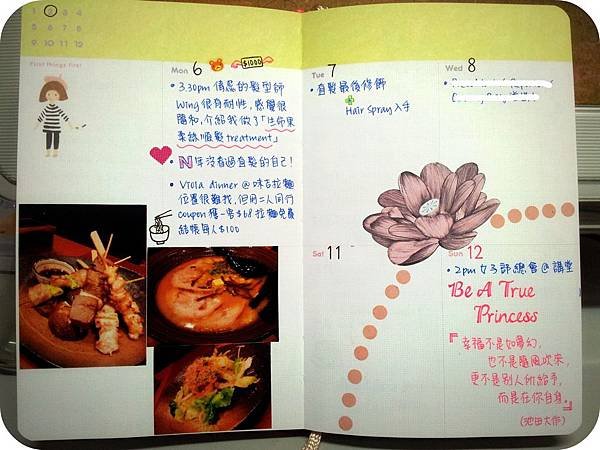 1 2 3 4
5 6 7 8
9 10 11 12
First things first!
Mon 6
$1000
• 3.30pm 傳蕊的髮型師
Wing 很有耐性，感覺很
隨和，介紹我做了「生命果
柔絲順髮 treatment」
N年沒有過直髮的自己！
• Viola dinner @ 味吉拉麵
位置很難找，但用二人同行
coupon 獲一客$68拉麵免費
結帳每人$100
Tue 7
• 直髮最後修飾
Hair Spray 入手
Wed 8
Sat 11
Sun 12
• 2pm 女子部總會@講堂
Be A True
Princess
『幸福不是如夢幻，
也不是隨風吹來，
更不是別人所給予，
而是在你自身。』
(池田大作)